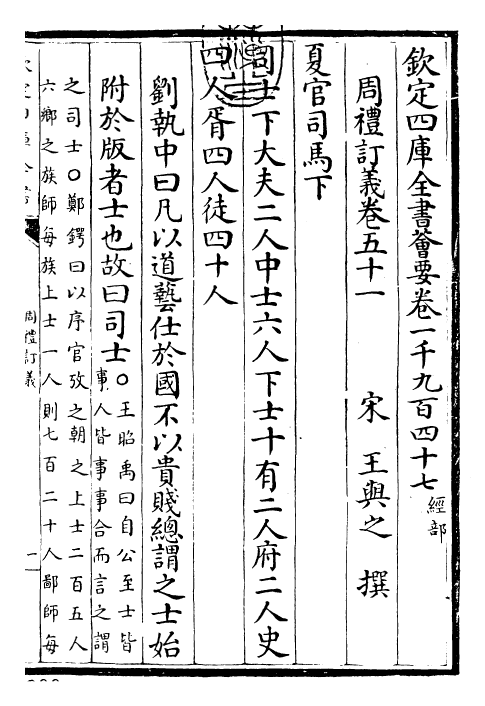 欽定四庫全書薈要卷一千九百四十七經部
周禮訂義卷五十一 宋 王與之 撰
夏官司馬下
司士下大夫二人中士六人下士十有二人府二人史
四人胥四人徒四十人
劉執中曰凡以道藝仕於國不以貴賤總謂之士始
附於版者士也故曰司士○王昭禹曰自公至士皆
事人皆事事合而言之謂
之司士○鄭鍔曰以序官攷之朝之上士二百五人
六鄉之族師每族上士一人則七百二十人鄙師每
周禮訂義
一